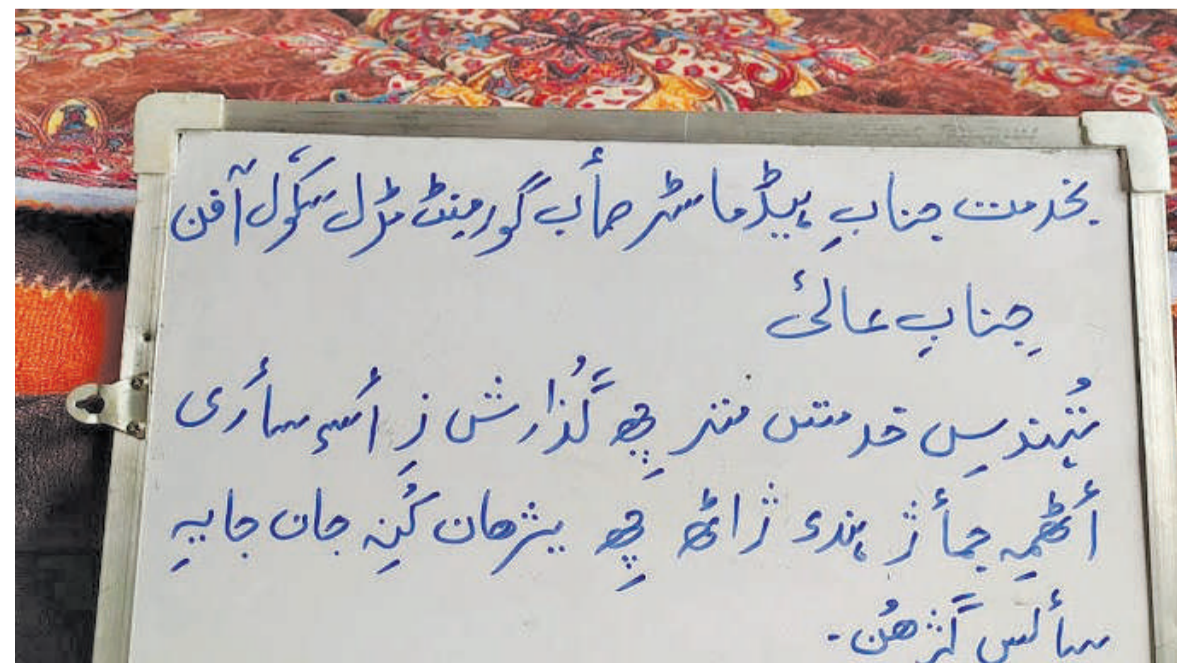 بخدمت جنابِ ہیڈماسٹر صأب گورمنٹ مڈل سکوٗل آفن
جِنابِ عالیٔ
تُہندِس خدمتس منٛز چِھ گُذارش زِ أسۍ سأری
أٹھمِہ جمأژ ہندۍ ژاٹھ چِھ یژھان کُنِہ جان جایہِ
سألس گژھُن۔